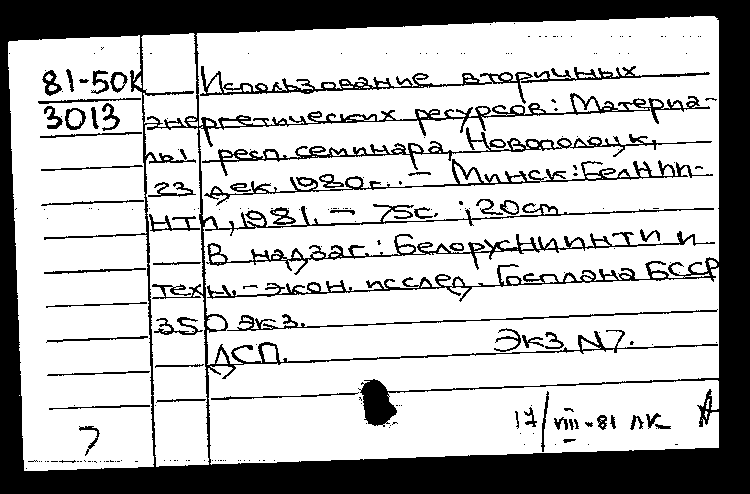 81-50К Использование вторичных
3013 энергетических ресурсов: Материа-
лы респ. семинара, Новополоцк,
23 дек. 1980г.. - Минск: БелНИИ-
НТИ, 1981. - 75с. ; 20см.
В надзаг.: БелорусНИИНТИ и
техн.-экон. исслед. Госплана БССР
350 экз.
ДСП. Экз. N7.
17/VIII-81 ЛК
7